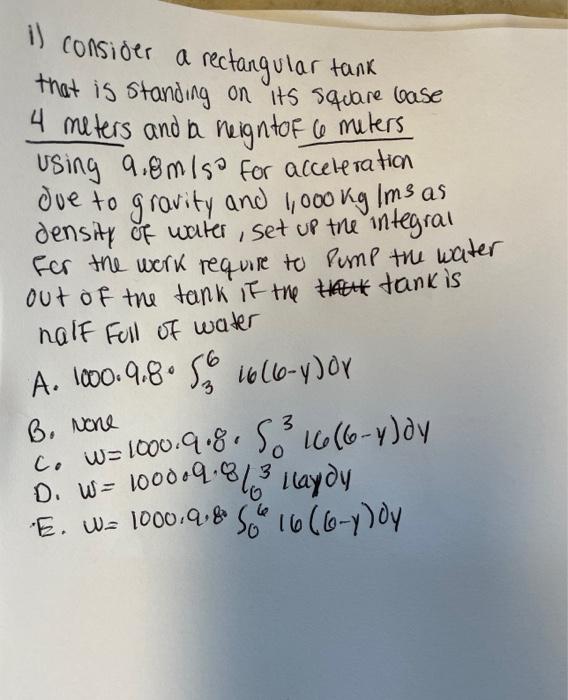 i) consider a rectangular tank
that is standing on its square base
4 meters and a heightof 6 meters
using 9.8m/s² for acceleration
due to gravity and 1,000 kg/m3 as
density of water, set up the integral
For the work require to Pump the water
out of the tank if the tank is
half Full of water
A. 1000.9.8. ∫₃⁶ 16(6-y)dy
B. None
C. W=1000.9.8. ∫₀³ 16(6-y)dy
D. W= 1000.9.8 ∫₀³ y dy
E. W= 1000.9.8 ∫₀⁶ 16(6-y)dy